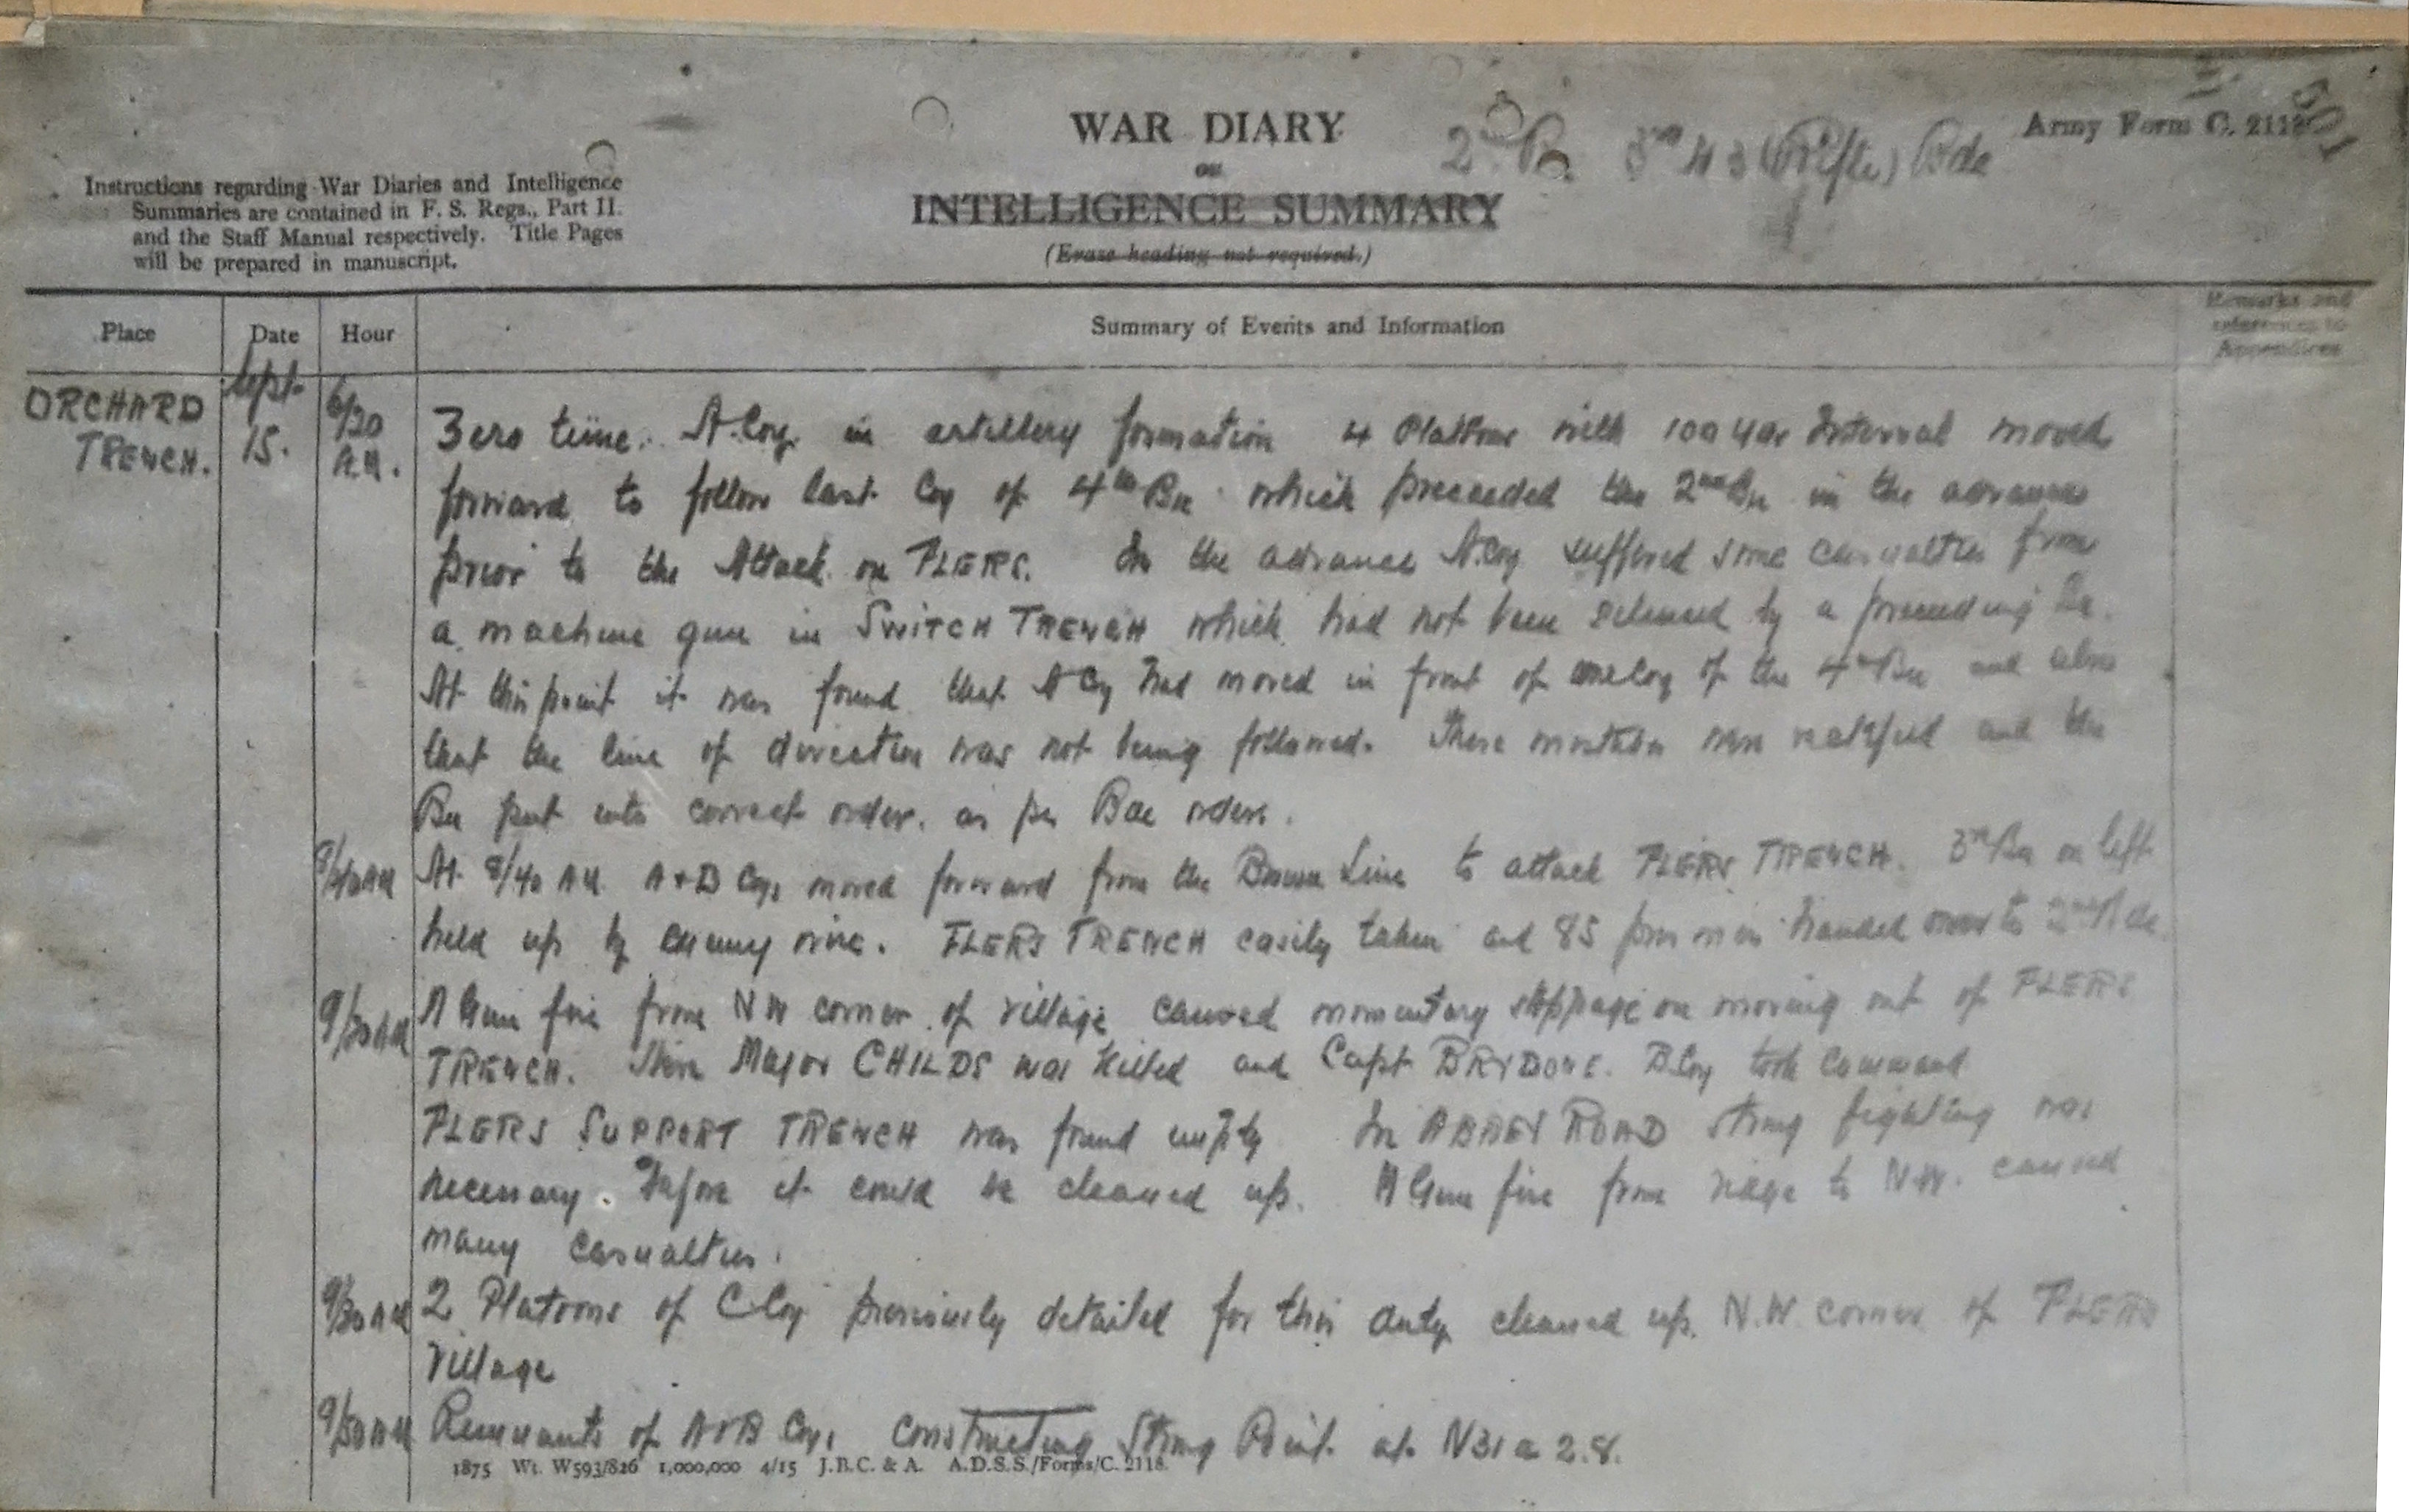 WAR DIARY
OR
INTELLIGENCE SUMMARY
(Erase heading not required.)
2nd Bn. 3rd N Z (Rifle) Bde
Army Form C. 2118
501
Instructions regarding War Diaries and Intelligence
Summaries are contained in F. S. Regs., Part II.
and the Staff Manual respectively. Title Pages
will be prepared in manuscript.
Place Date Hour Summary of Events and Information Remarks and
references to
Appendices
ORCHARD
TRENCH.
Sept.
15.
6/20
A.M.
Zero time. A.Coy. in artillery formation 4 Platoons with 100 yds interval moved
forward to follow last Coy of 4th Bn which preceeded the 2nd Bn in the advance
prior to the Attack on FLERS. In the advance A.Coy suffered some casualties from
a machine gun in SWITCH TRENCH which had not been silenced by a preceeding Bn.
At this point it was found that A Coy had moved in front of one Coy of the 4th Bn and also
that the line of direction was not being followed. These mistakes were rectified and the
Bn put into correct order. as per Bde orders.
8/40 AM At 8/40 AM. A + B Coys moved forward from the Brown Line to attack FLERS TRENCH. 3rd Bn on left
held up by enemy wire. FLERS TRENCH easily taken and 85 prisoners handed over to 2nd Bde
9/30 AM M Gun fire from N W corner of village caused momentary stoppage on moving out of FLERS
TRENCH. Here Major CHILDS was killed and Capt BRYDONE. B.Coy took command
FLERS SUPPORT TRENCH was found empty In ABBEY ROAD strong fighting was
necessary. before it could be cleaned up. M Gun fire from ridge to N.W. caused
many casualties.
9/30 AM 2 Platoons of C Coy previously detailed for this duty cleaned up N.W. corner of FLERS
Village
9/50 AM Remnants of A + B Coys constructing Strong Point at N31 a 2.8.
1875 Wt. W593/826 1,000,000 4/15 J.B.C. & A. A.D.S.S./Forms/C. 2118.